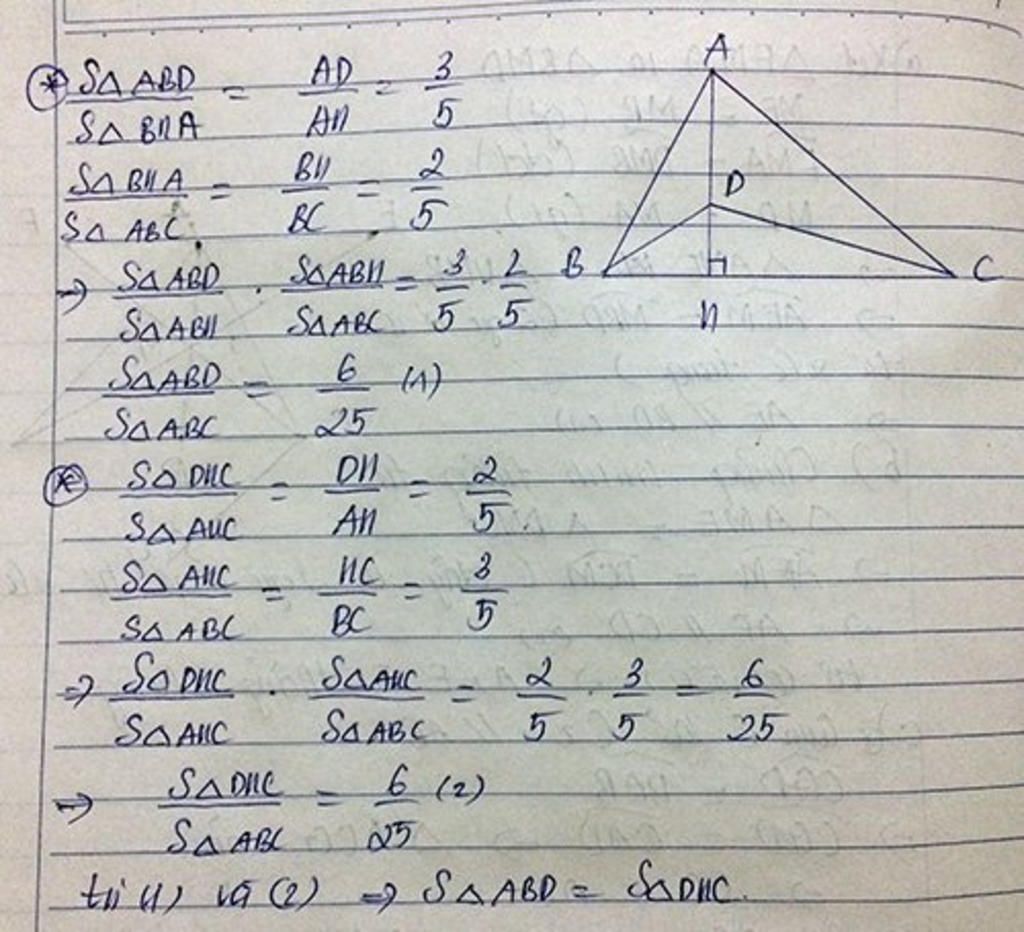 * S△ABD / S△BHA = AD / AH = 3 / 5
S△BHA / S△ABC = BH / BC = 2 / 5
=> S△ABD / S△ABH . S△ABH / S△ABC = 3 / 5 . 2 / 5
S△ABD / S△ABC = 6 / 25 (1)
* S△DHC / S△AHC = DH / AH = 2 / 5
S△AHC / S△ABC = HC / BC = 3 / 5
=> S△DHC / S△AHC . S△AHC / S△ABC = 2 / 5 . 3 / 5 = 6 / 25
=> S△DHC / S△ABC = 6 / 25 (2)
từ (1) và (2) => S△ABD = S△DHC.
A
D
B
C
H